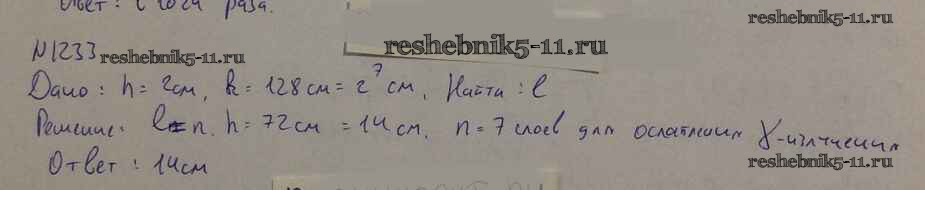 Ответ: в 1024 раза.
reshebnik5-11.ru
N1233 reshebnik5-11.ru
reshebnik5-11.ru
Дано: h = 2см, k = 128 см = 2⁷ см. Найти: l
Решение: l = n. h = 72см = 14 см. n = 7 слоев для ослабления γ-излучения
Ответ: 14см
reshebnik5-11.ru